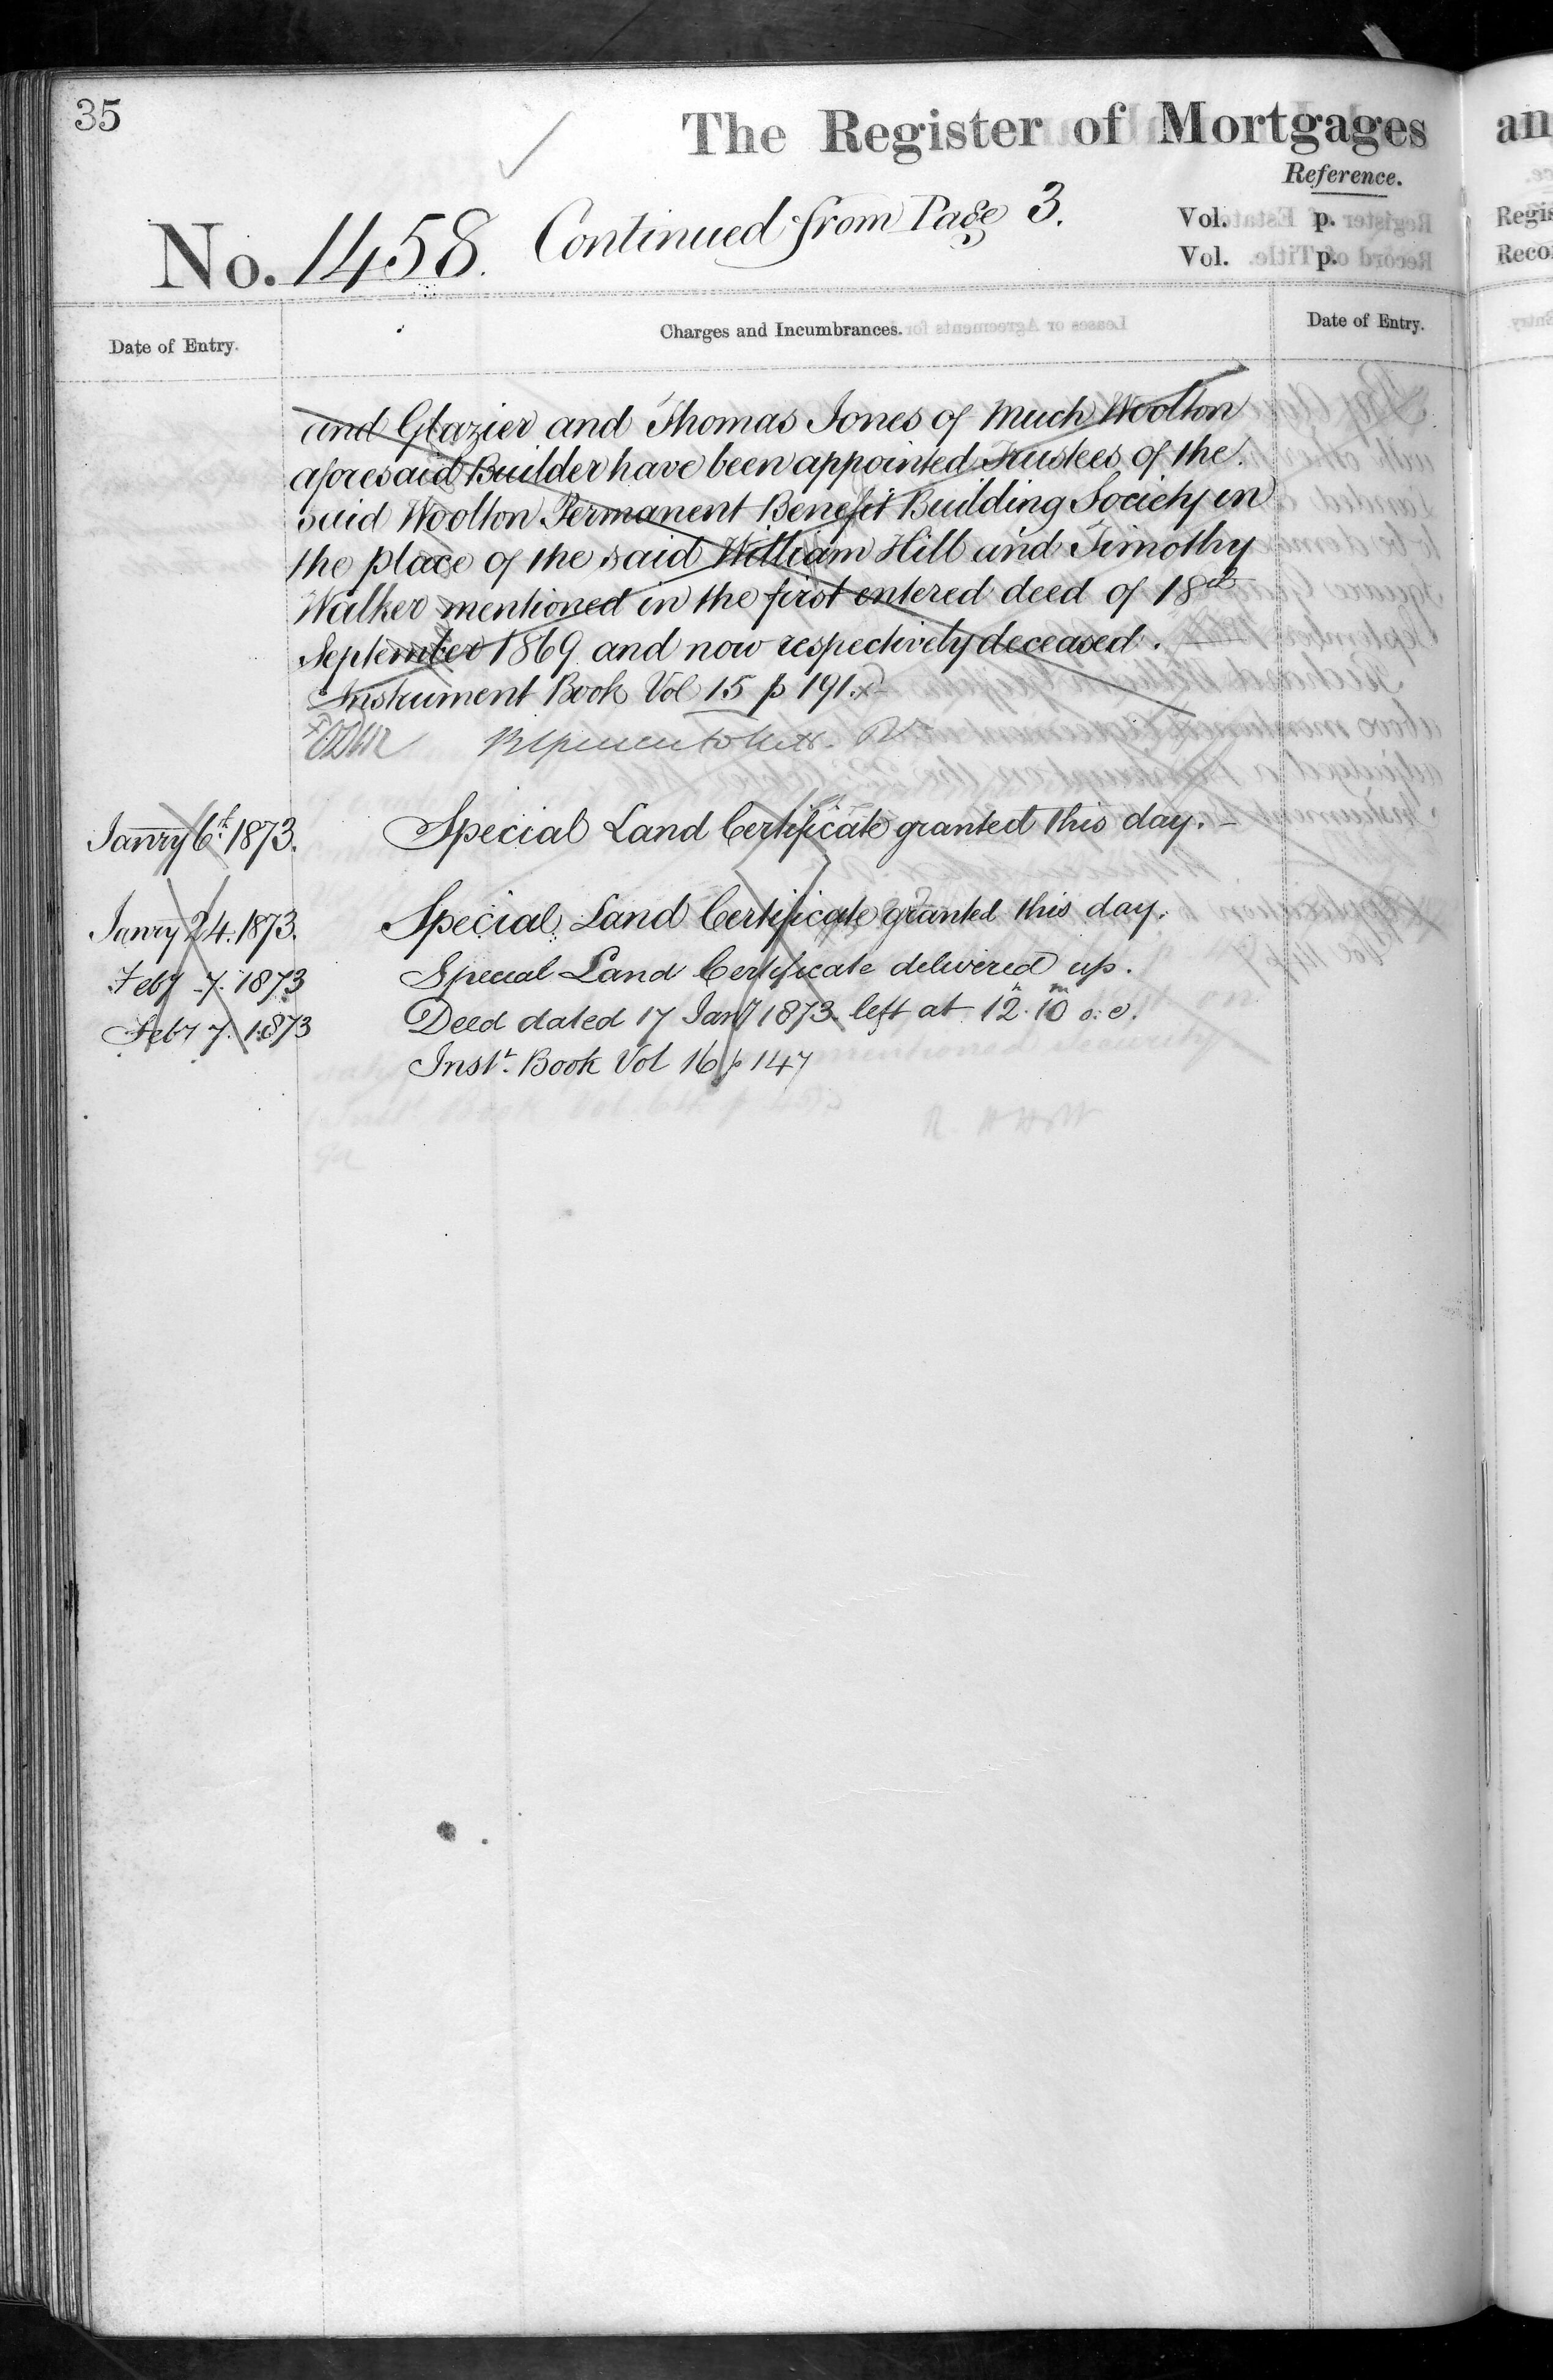 35
The Register of Mortgages
Reference.
No. 1458. Continued from Page 3.
Vol. p.
Vol. p.
Date of Entry.
Charges and Incumbrances.
Date of Entry.
and Glazier and Thomas Jones of Much Woolton
aforesaid Builder have been appointed Trustees of the
said Woolton Permanent Benefit Building Society in
the place of the said William Hill and Timothy
Walker mentioned in the first entered deed of 18th
September 1869 and now respectively deceased.
Instrument Book Vol 15 p 191.
Janry 6th 1873. Special Land Certificate granted this day.
Janry 24. 1873. Special Land Certificate granted this day.
Feby 7. 1873 Special Land Certificate delivered up.
Feby 7. 1873 Deed dated 17 Jany 1873 left at 12h 10m o.c.
Instt. Book Vol 16 p 147
an
Regis
Recor